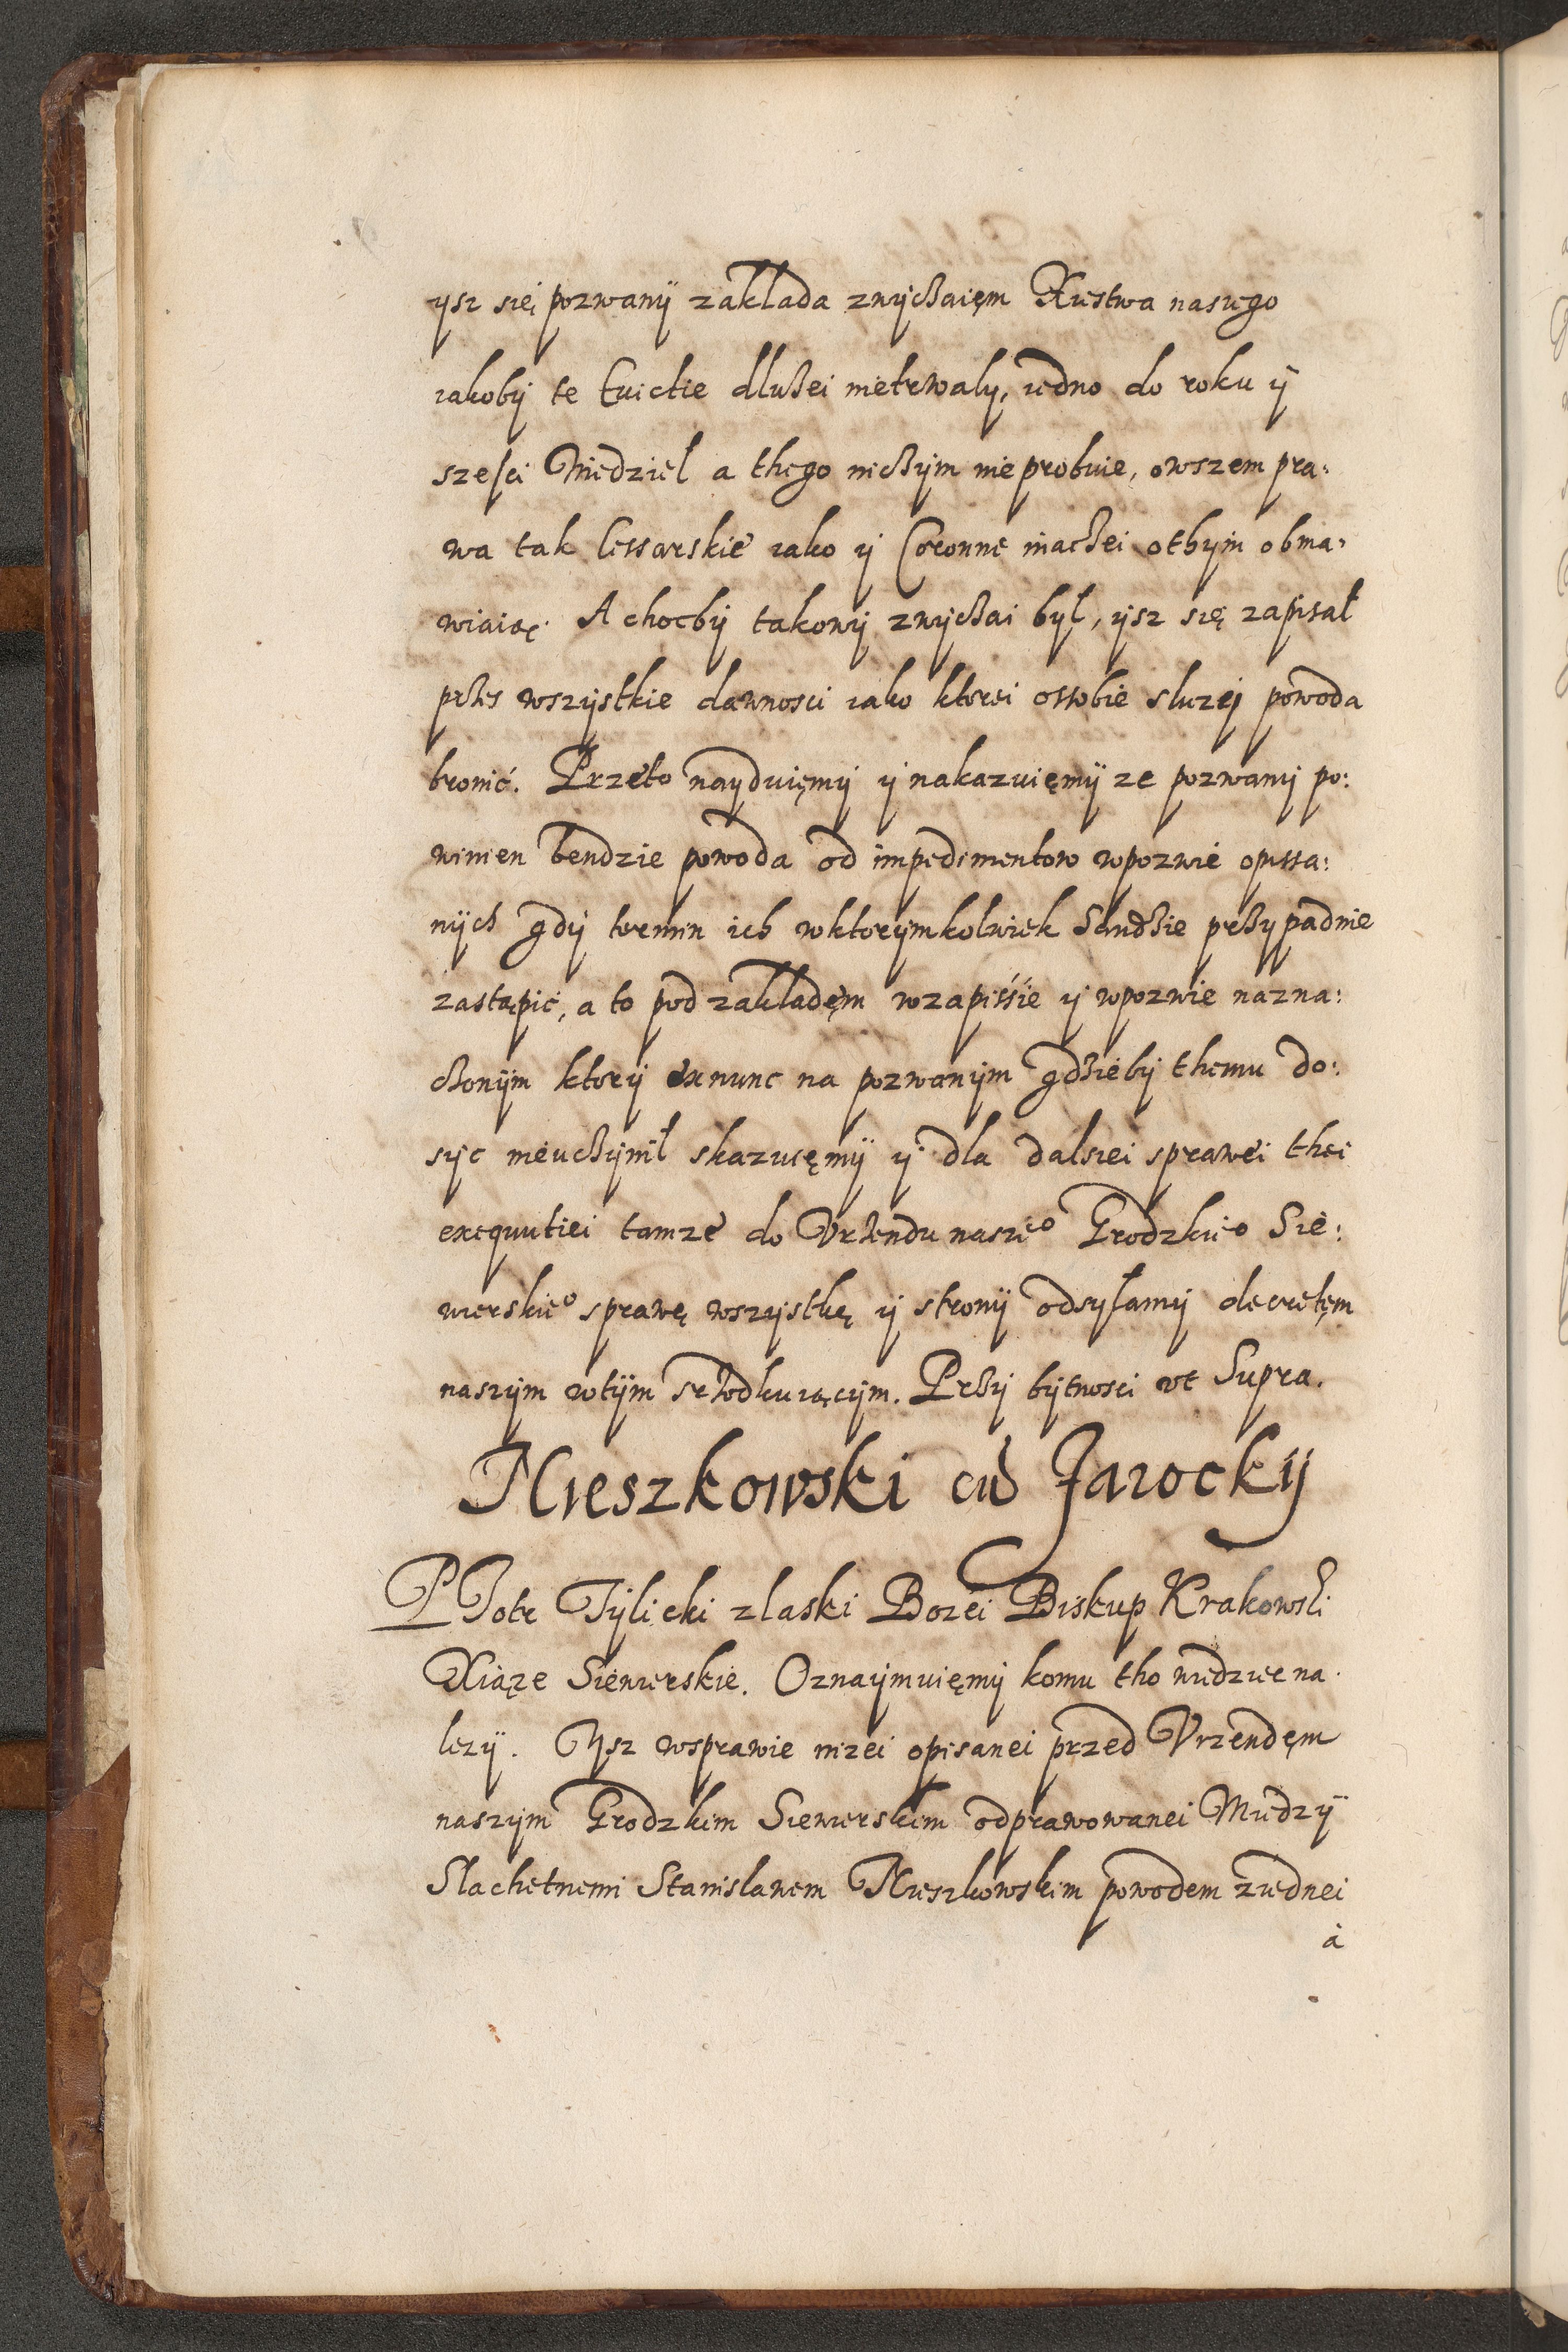 ysz się pozwanÿ zaklada zwyczaięm Xięstwa naszego
iakobÿ te Euictie dluzei nietrwaly, iedno do roku ÿ
szesci Niedziel a thego niczÿm nie probuie, owszem pra:
wa tak Cessarskie iako ÿ Coronne inaczei othÿm obma:
wiaią. A chocbÿ takowÿ zwyczai był, ysz się zapisał
przes wszÿstkie dawnosci iako ktorei ossobie sluzej powoda
bronić. Przeto naÿduięmÿ ÿ nakazuięmÿ ze pozwanÿ po:
winien bendzie powoda od impedimentow wpozwie opissa:
nÿch gdÿ termin ich wktorÿmkolwiek Sandzie przÿpadnie
zastąpić, a to pod zakladęm wzapissie ÿ wpozwie nazna:
czonÿm ktorÿ exnunc na pozwanÿm gdziebÿ themu do:
sÿc nieuczÿnił skazuięmÿ ÿ dla dalszei sprawei thei
exequutiei tamze do Vrzendu naszeº Grodzkieº Sie:
wierskieº sprawę wszÿstkę ÿ stronÿ odsÿłamÿ decretęm
naszÿm wtÿm srzodkuiącÿm. Przÿ bÿtnosci vt Supra.
Mieszkowski cū Jarockÿ
PJotr Tÿlicki zlaski Bozei Biskup Krakowski
Xiąze Siewierskie. Oznaÿmuięmÿ komu tho wiedziec na:
lezÿ. Ysz wsprawie nizei opisanei przed Vrzendęm
naszÿm Grodzkim Siewierskim odprawowanei Miedzÿ
Slachetnemi Stanislawem Mieszkowskim powodem ziednei
à